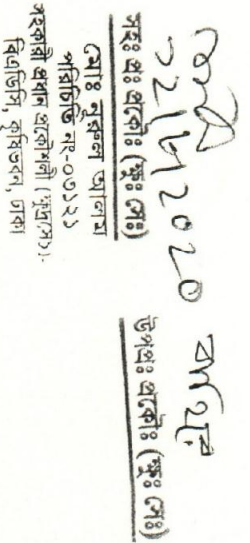 ২২/২/২০২০
সহঃ প্রঃ প্রকৌঃ (ক্ষুঃ সেঃ)
মোঃ নুরুল আলম
পরিচিতি নং-০৭১২১
সহকারী প্রধান প্রকৌশলী (ক্ষুদ্রসেচ)
বিএডিসি, কৃষিভবন, ঢাকা
উপপ্রঃ প্রকৌঃ (ক্ষুঃ সেঃ)